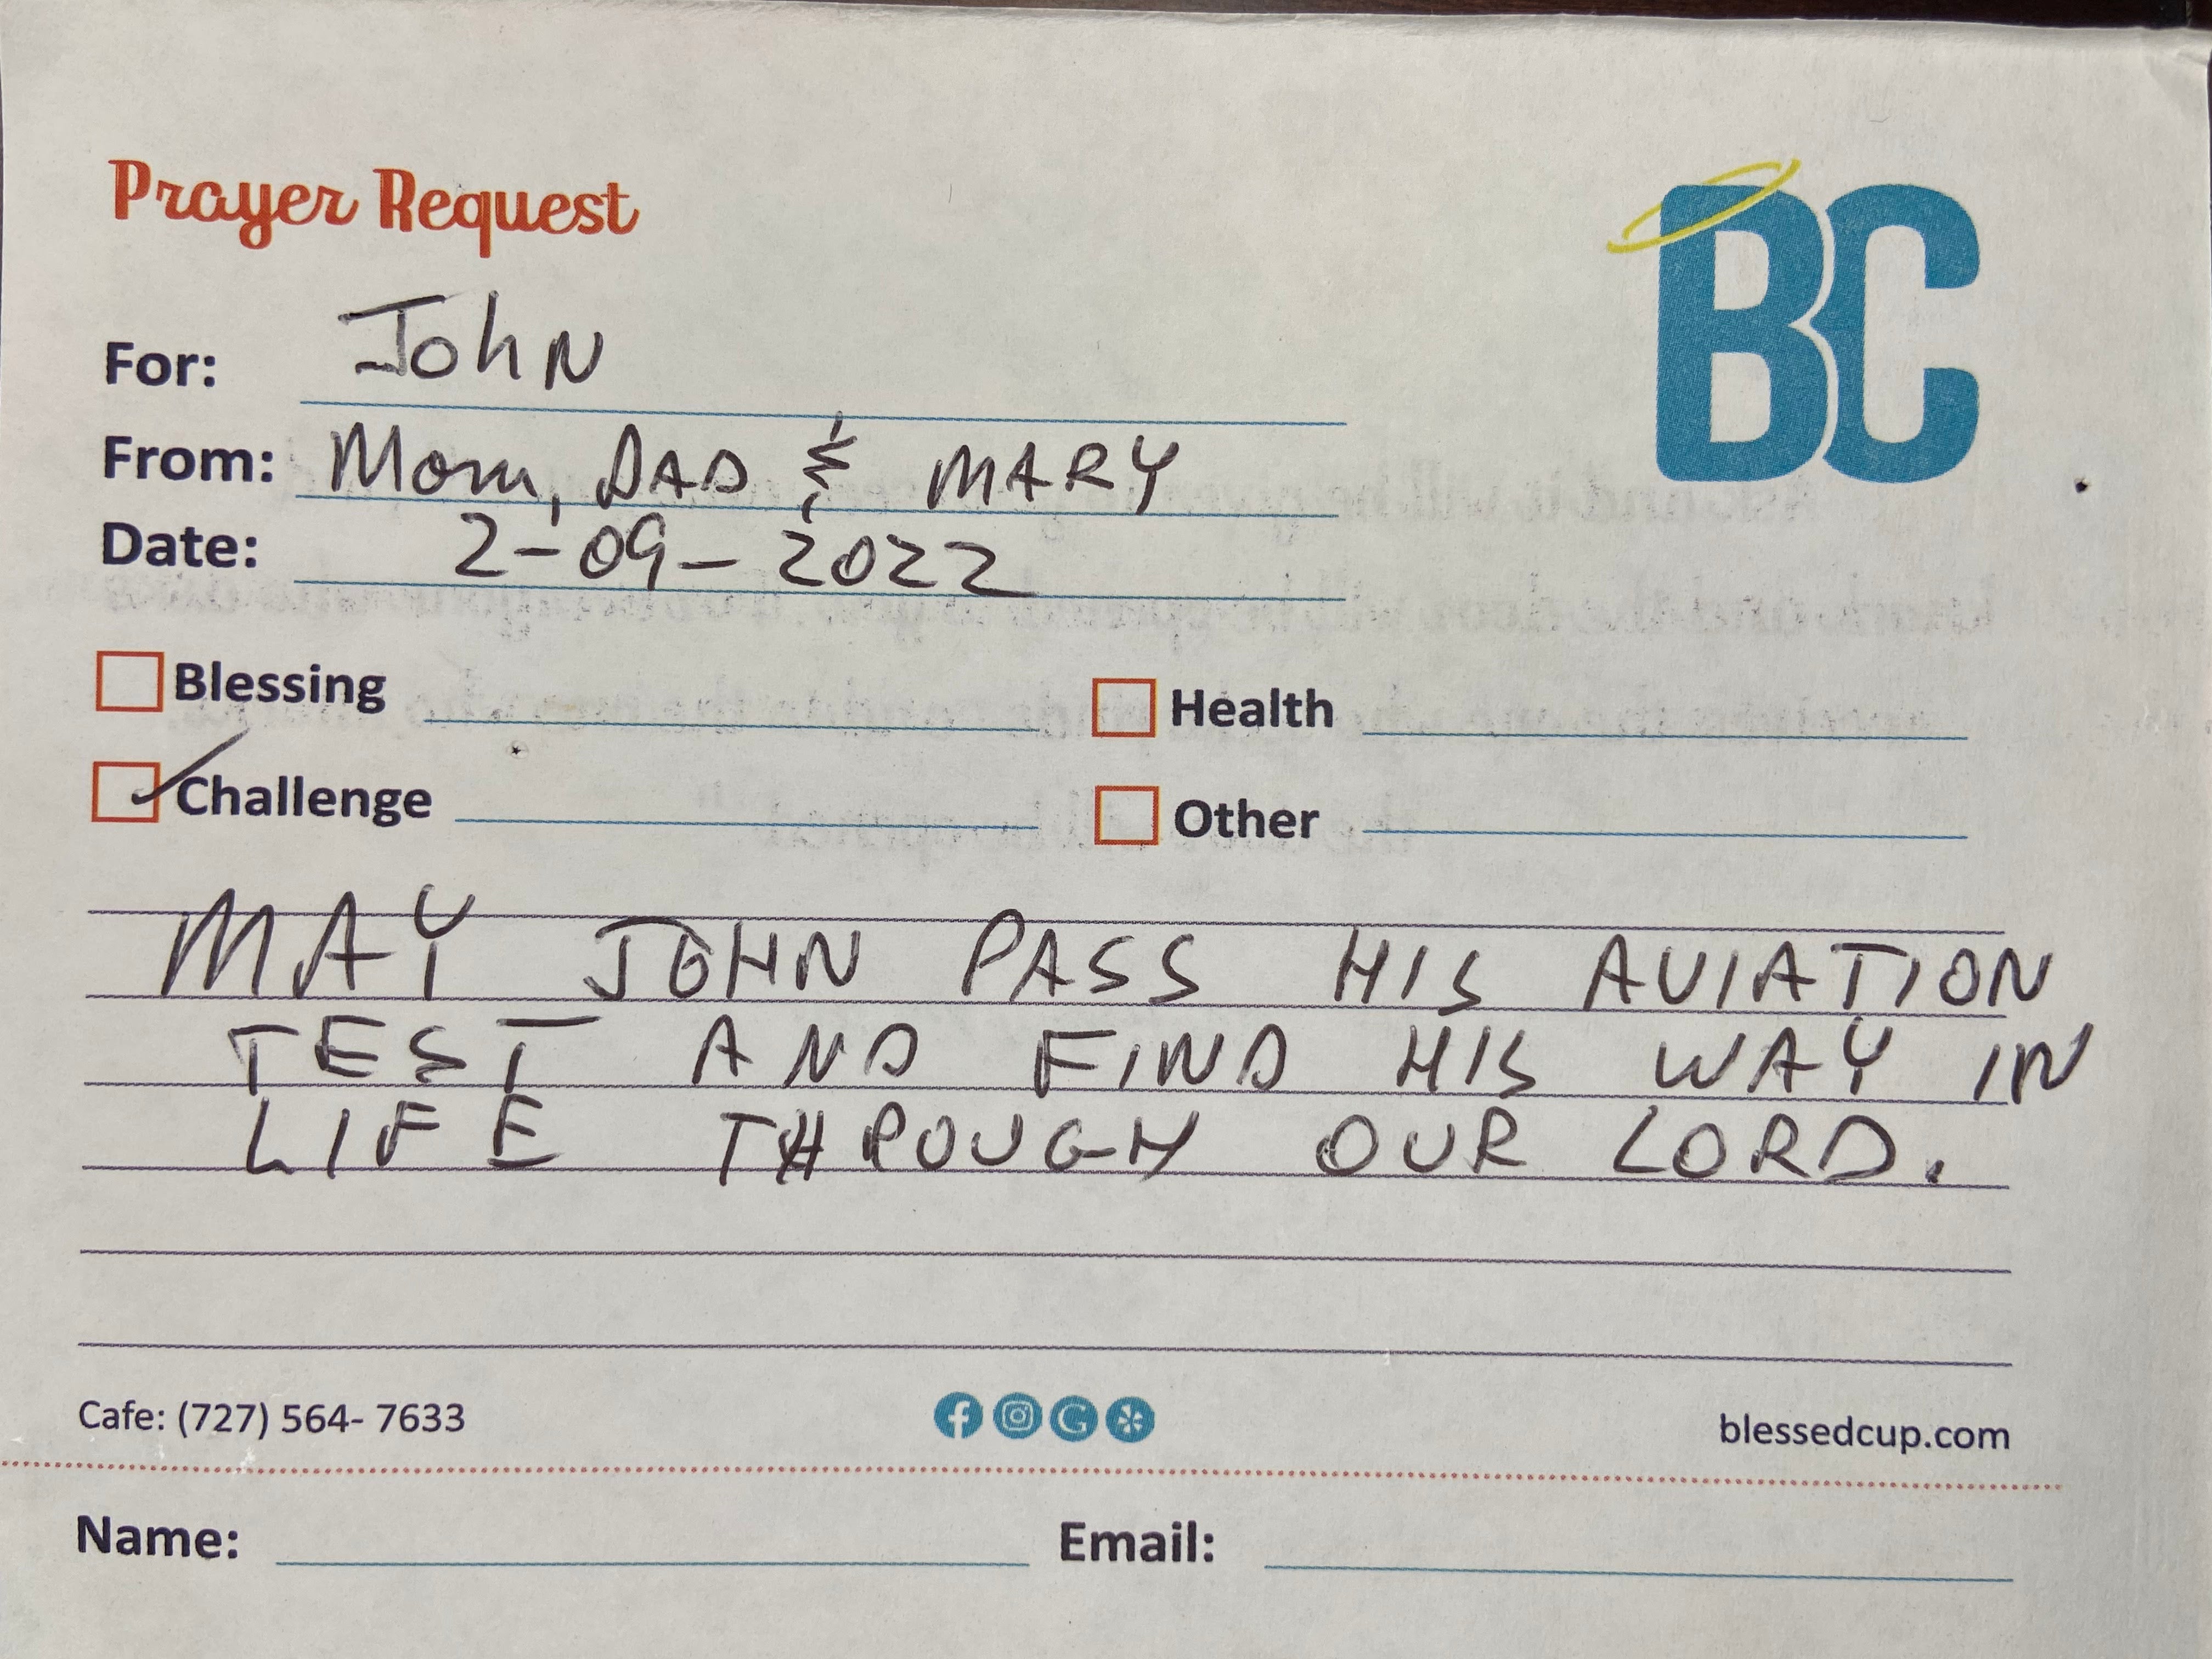 Prayer Request
BC
For: John
From: Mom, DAD & MARY
Date: 2-09-2022
Blessing Health
Challenge Other
MAY JOHN PASS HIS AVIATION
TEST AND FIND HIS WAY IN
LIFE THROUGH OUR LORD.
Cafe: (727) 564- 7633 blessedcup.com
Name: Email: